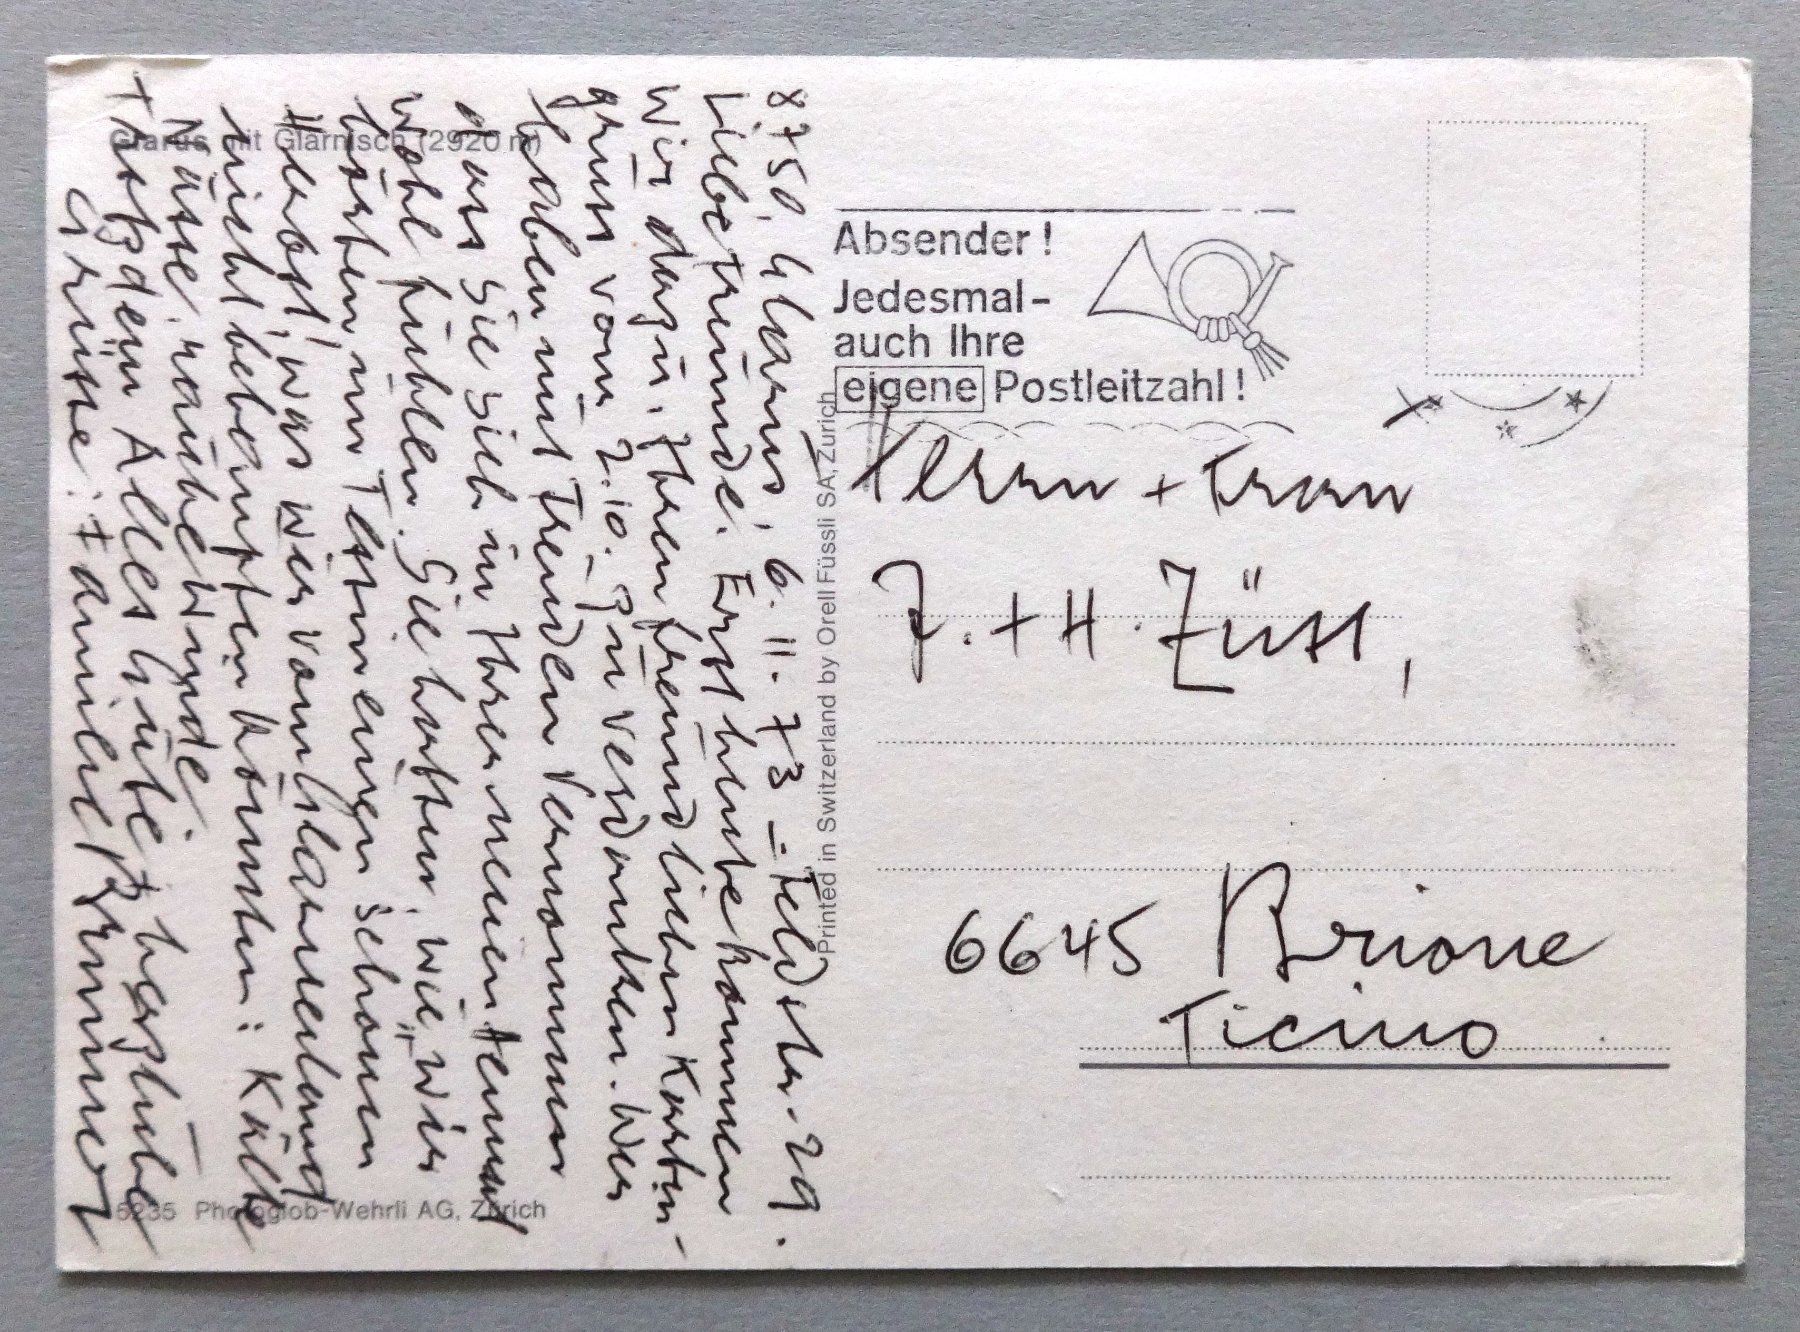 Glarus mit Glärnisch (2920 m)
8750 Glarus, 6. 11. 73 – Feldstr. 29.
Liebe Freunde! Erst heute kommen
wir dazu, Ihren freundlichen Karten-
gruss vom 2.10. zu verdanken. Wir
haben mit Freuden vernommen
dass Sie sich in Ihrer neuen Heimat
wohl fühlen. Sie hatten, wie wir
hörten, im Tessin einen schönen
Herbst, was wir vom Glarnerland
nicht behaupten könnten: Kälte
Nässe, rauhe Winde
Trotzdem Alles Gute + herzliche
Grüsse: Familie Brunner
15235 Photoglob-Wehrli AG, Zürich
Printed in Switzerland by Orell Füssli SA, Zürich
Absender!
Jedesmal-
auch Ihre
eigene Postleitzahl!
Herrn + Frau
J. + H. Züst,
6645 Brione
Ticino